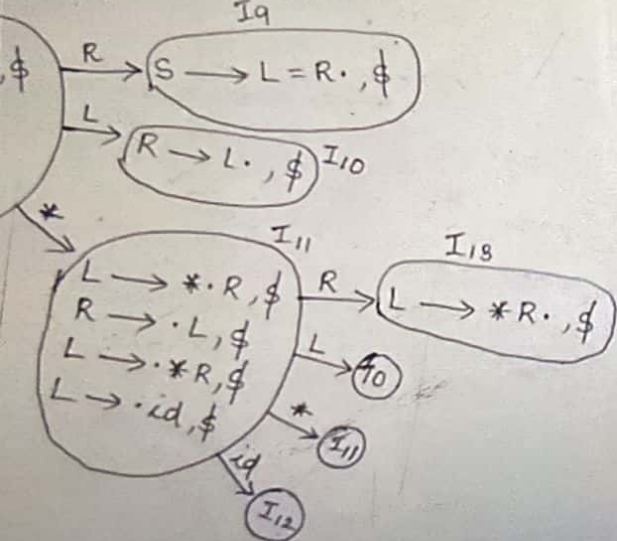 I9
,$
R
S → L = R· , $
L
R → L· , $
I10
*
I11
L → *·R, $
R → ·L, $
L → ·*R, $
L → ·id, $
R
I13
L → *R· , $
L
I10
*
I11
id
I12